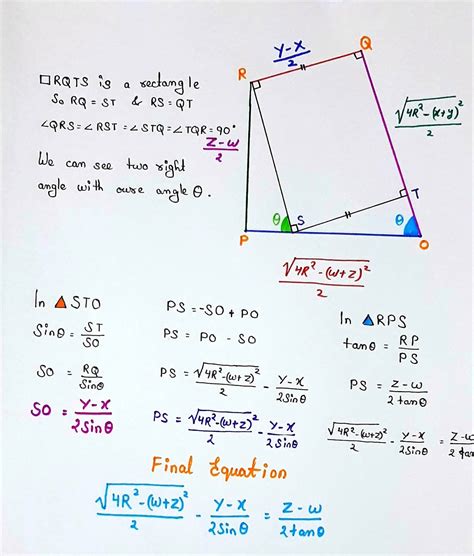 □RQTS is a rectangle
So RQ = ST & RS = QT
∠QRS = ∠RST = ∠STQ = ∠TQR = 90°
We can see two right
angle with ouse angle θ.
R
Q
P
S
T
O
θ
θ
(Y-X)/2
(Z-ω)/2
√(4R²-(x+y)²)/2
√(4R²-(ω+z)²)/2
In △STO
Sinθ = ST/SO
SO = RQ/Sinθ
SO = (Y-X)/(2Sinθ)
PS = -SO + PO
PS = PO - SO
PS = √(4R²-(ω+z)²)/2 - (Y-X)/(2Sinθ)
PS = √(4R²-(ω+z)²)/2 - (Y-X)/(2Sinθ)
In △RPS
tanθ = RP/PS
PS = (Z-ω)/(2tanθ)
√(4R²-(ω+z)²)/2 - (Y-X)/(2Sinθ) = (Z-ω)/(2tan
Final Equation
√(4R²-(ω+z)²)/2 - (Y-X)/(2Sinθ) = (Z-ω)/(2tanθ)